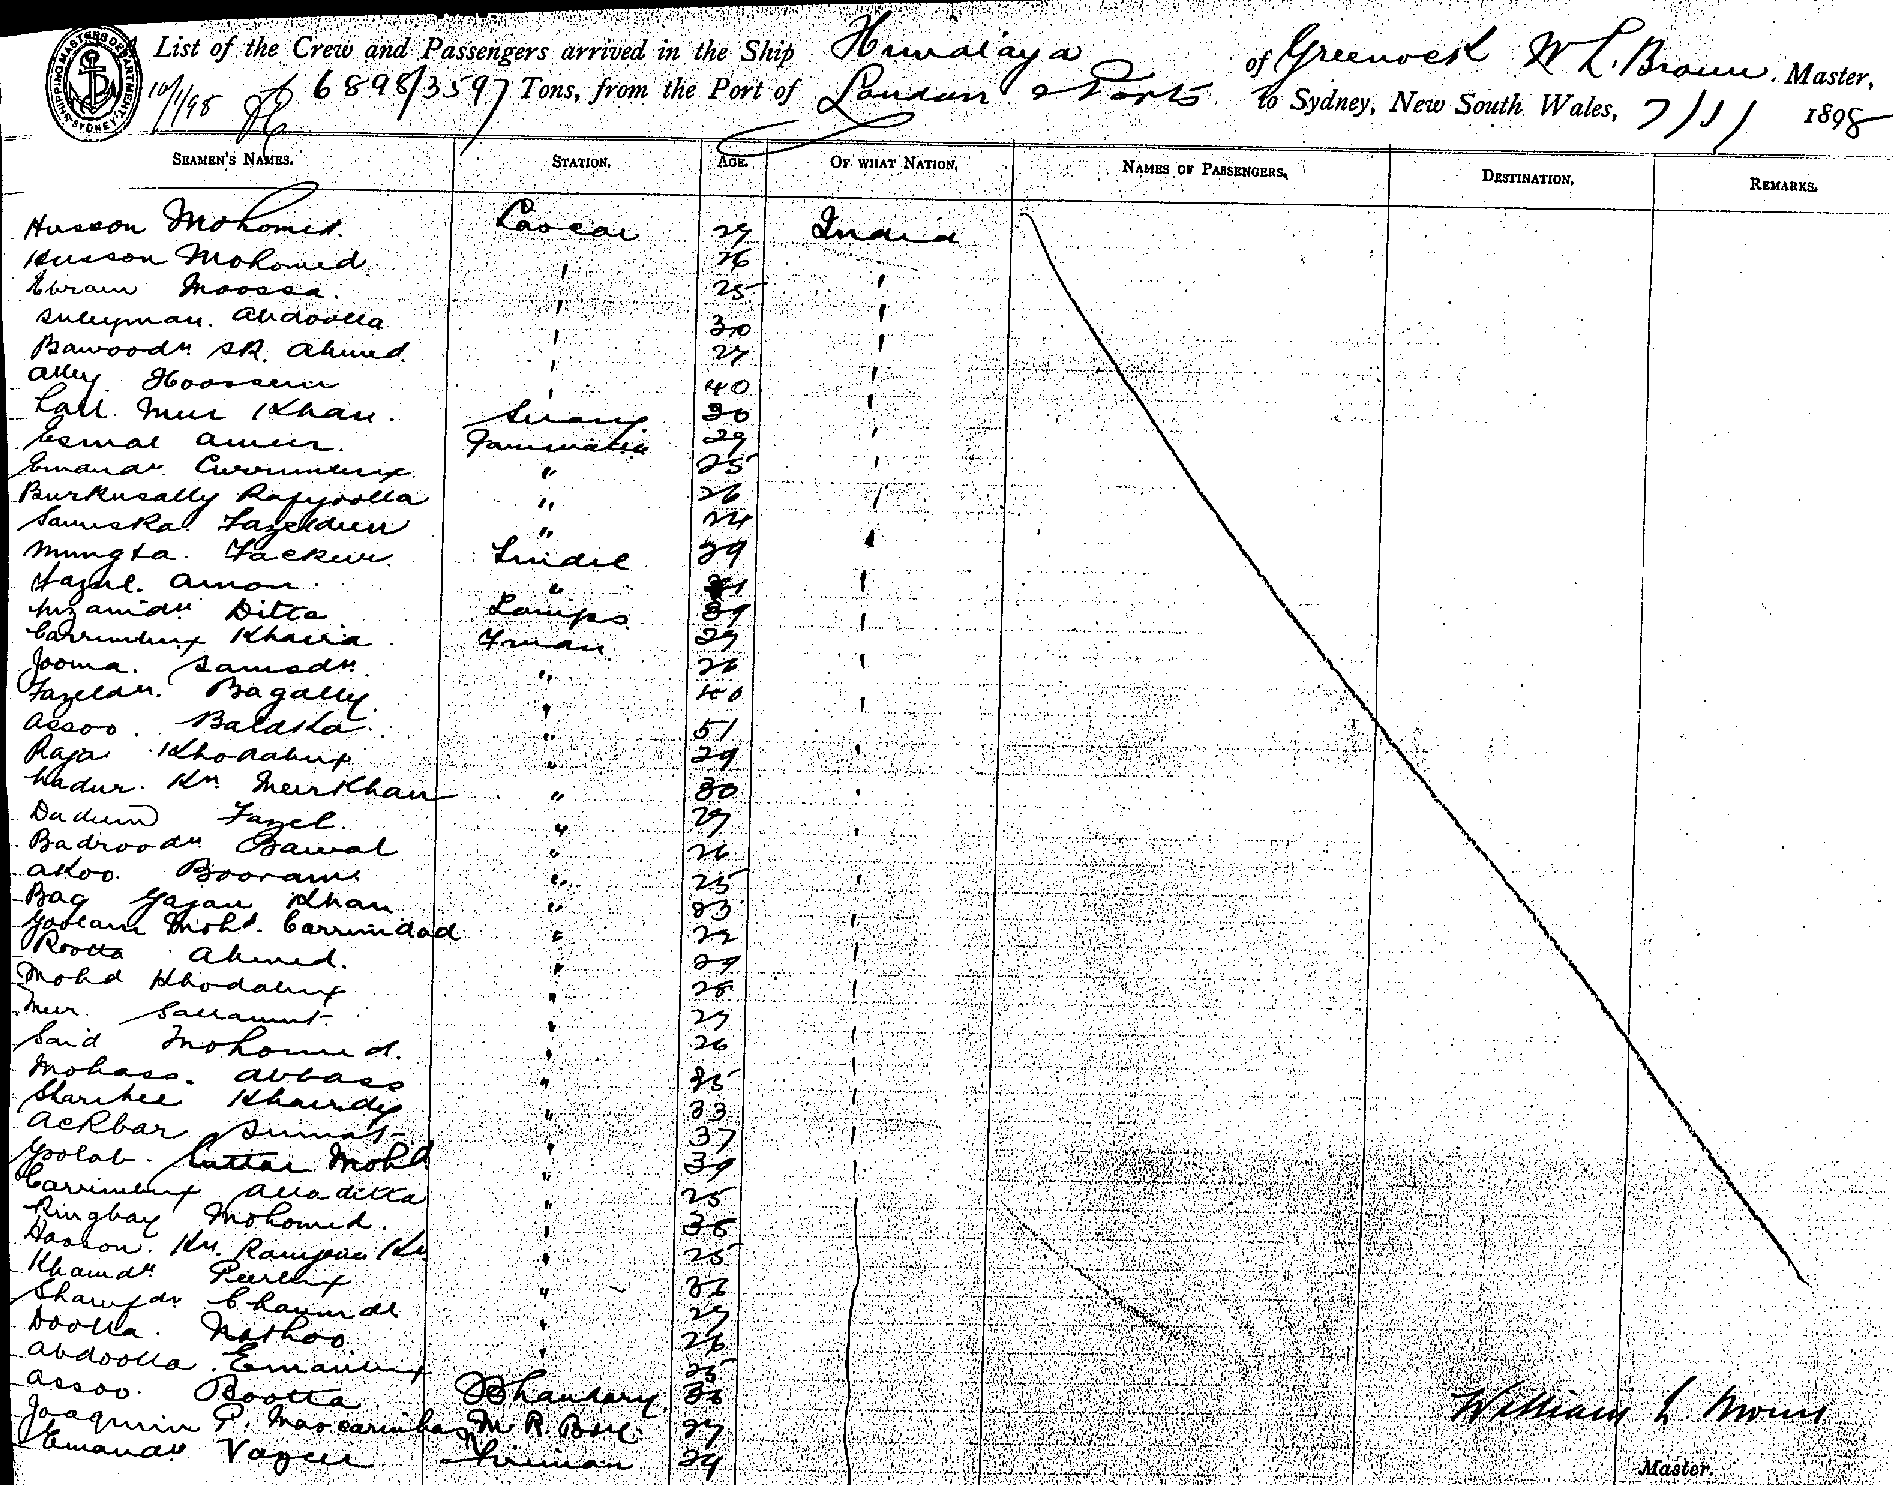 SHIPPING MASTERS DEPARTMENT SYDNEY
List of the Crew and Passengers arrived in the Ship Himalaya of Greenock W L. Brown. Master,
10/1/98 6898/3597 Tons, from the Port of London & Ports to Sydney, New South Wales, 7/1/ 1898
SEAMEN'S NAMES. STATION. AGE. OF WHAT NATION. NAMES OF PASSENGERS. DESTINATION. REMARKS.
Husson Mohomed. Lascar 27 India
Husson Mohomed 26
Ebram Moossa. 25
Suleyman. Abdoolla 30
Bawoodn SR. Ahmed. 27
Alley Hoossein 40
Lall. Meer Khan. Serang 30
Esmal Ameer. 29
Emandn Currimbux " 25
Burkusally " 26
Samska Fazeldeen " 24
Mungta. Fackeer. Tindel 29
Fazul. Amon. "
Nizamdn Ditta Lamps 39
Carrimbux Khaira Fman 27
Jooma. Samsdn. " 26
Fazeldn. Bagally. " 40
Assoo. Baldska " 51
Raja Khodabux " 29
Kn. Meer Khan " 30
Fazel. " 27
Badroodn Bawal " 26
Akoo. Booram " 25
Bag Khan " 23
Goolam Mohd. Carrimdad " 22
Rootta Ahmed. " 29
Mohd Khodabux " 28
Meer. " 27
Said Mohomed. " 26
Abbass " 25
" 33
Ackbar " 37
Goolab. Cuttar Mohd " 39
Carrimbux Alladitta " 25
Mohomed. " 36
Hasson. Kn. Kn " 25
Khamdn Peerbux "
" 27
Doolla. Nathoo " 26
Abdoolla. Emambux " 25
Assoo. Bootta Bhandary 36
Joaquim P. Mascarinhas M. R. Boy. 27
Emandn Vazeer Fireman 24
William L Brown
Master.